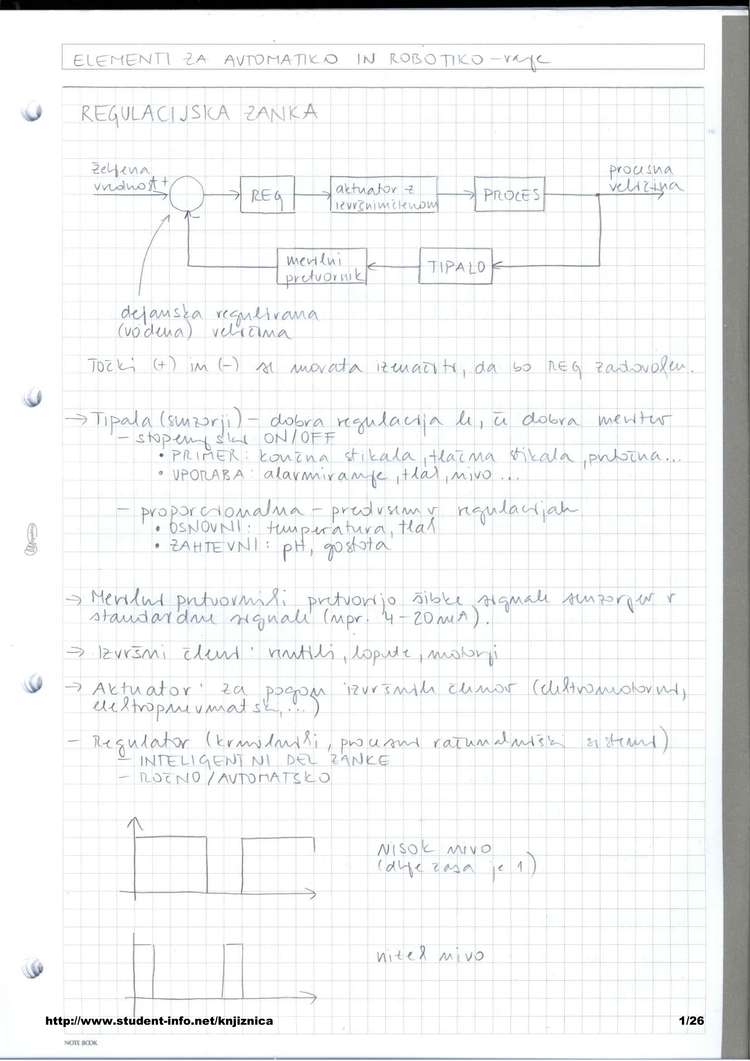 ELEMENTI ZA AVTOMATIKO IN ROBOTIKO - vaje
REGULACIJSKA ZANKA
željena
vrednost +
REG
aktuator z
izvršnim členom
PROCES
procesna
veličina
merilni
pretvornik
TIPALO
dejanska regulirana
(vodena) veličina
Točki (+) in (-) se morata izenačiti, da bo REG zadovoljen.
→ Tipala (senzorji) - dobra regulacija le, če dobra meritev
- stopenjska ON/OFF
• PRIMER: končna stikala, tlačna stikala, ...
• UPORABA: alarmiranje, tlak, nivo ...
- proporcionalna - predvsem v regulacijah
• OSNOVNI: temperatura, tlak
• ZAHTEVNI: pH, gostota
→ Merilni pretvorniki pretvorijo šibke signale senzorjev v
standardne signale (npr. 4-20mA).
→ Izvršni členi: ventili, lopute, motorji
→ Aktuator: za pogon izvršnih členov (elektromotorni,
elektropnevmatski, ...)
- Regulator (krmilniki, procesni računalniški sistemi)
- INTELIGENTNI DEL ZANKE
- ROČNO/AVTOMATSKO
VISOK NIVO
(dlje časa je 1)
nizek nivo
http://www.student-info.net/knjiznica
1/26
NOTE BOOK